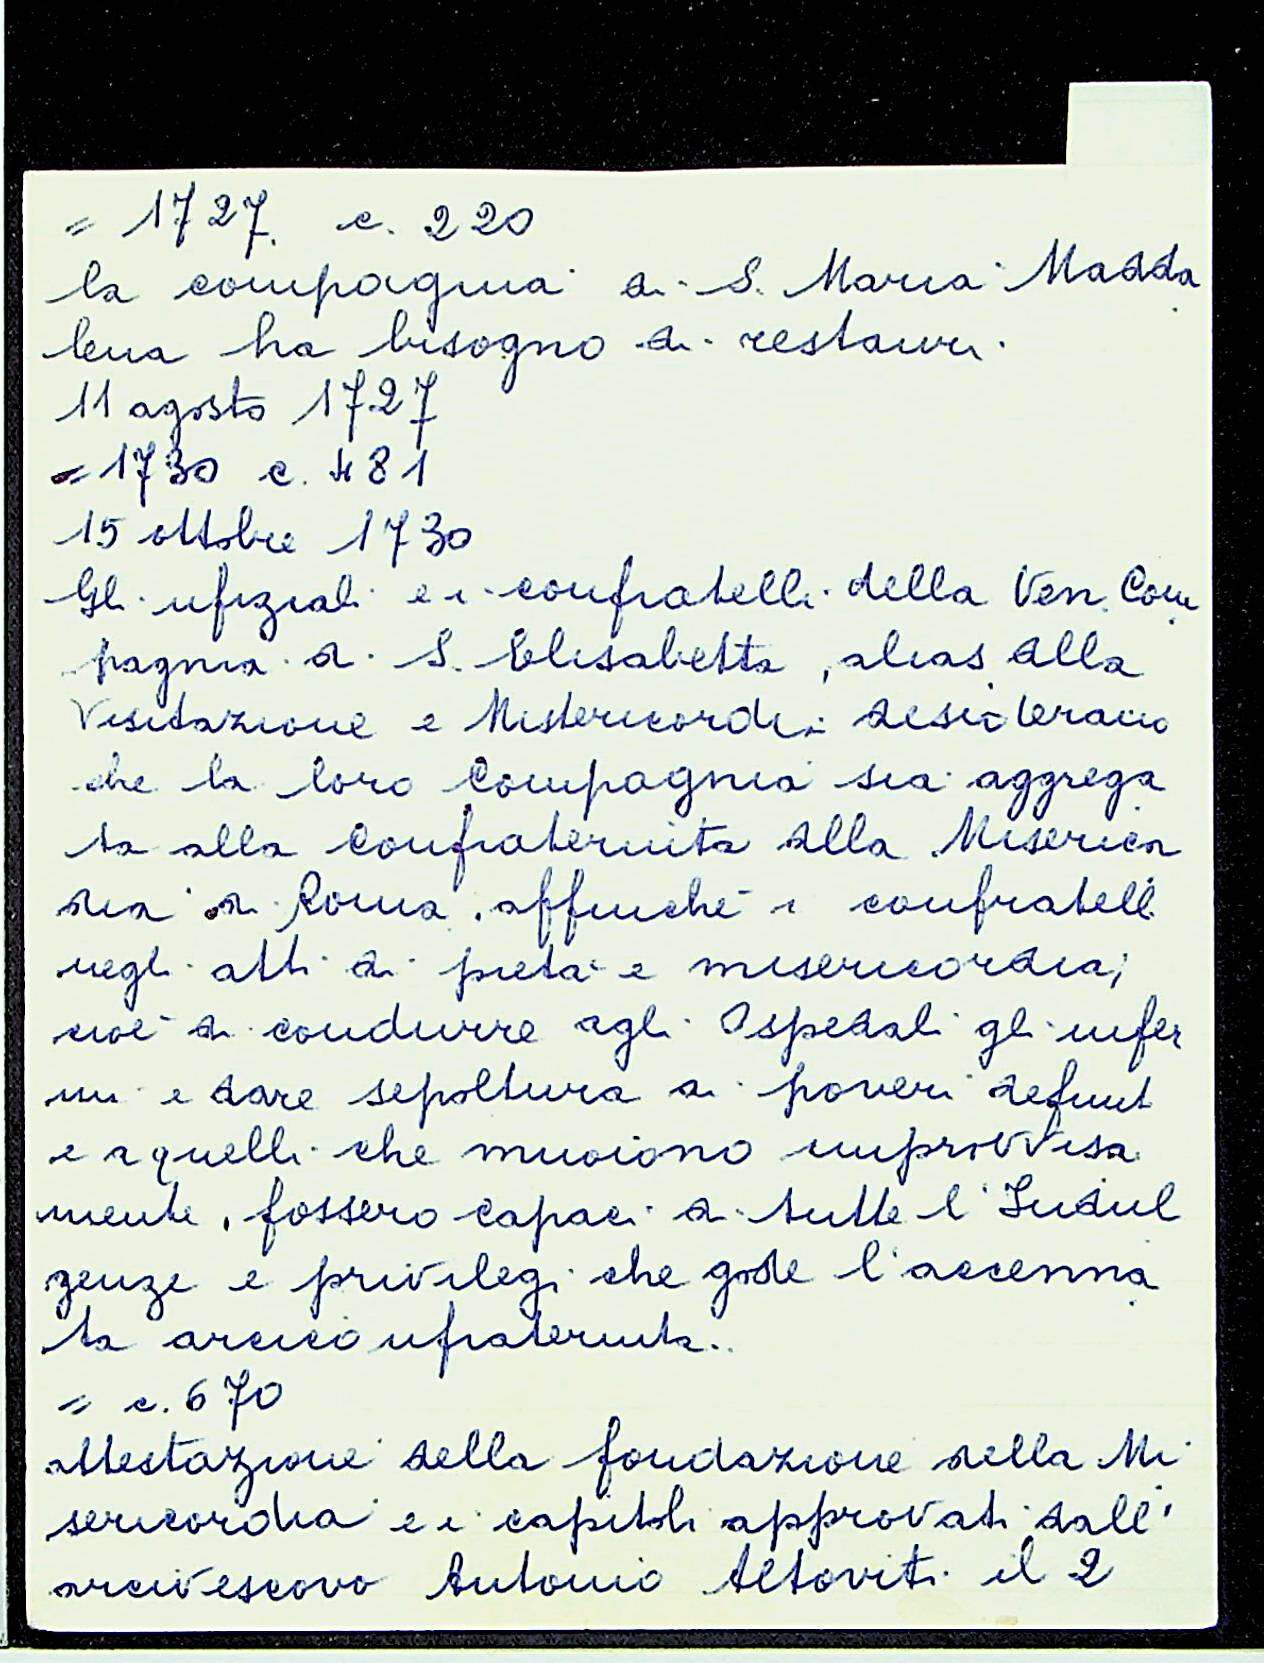 = 1727. c. 220
la compagnia di S. Maria Madda
lena ha bisogno di restauri.
11 agosto 1727
= 1730 c. 481
15 ottobre 1730
Gli ufiziali e i confratelli della Ven. Com
pagnia di S. Elisabetta, alias della
Visitazione e Misericordia desiderano
che la loro Compagnia sia aggrega
ta alla Confraternita della Misericor
dia di Roma, affinché i confratelli
negli atti di pietà e misericordia;
cioè di condurre agli Ospedali gli infer
mi e dare sepoltura ai poveri defunti
e a quelli che muoiono improvvisa
mente, fossero capaci di tutte l'Indul
genze e privilegi che gode l'accenna
ta arciconfraternita.
= c. 670
attestazione della fondazione della Mi
sericordia e i capitoli approvati dall'
arcivescovo Antonio Altoviti il 2